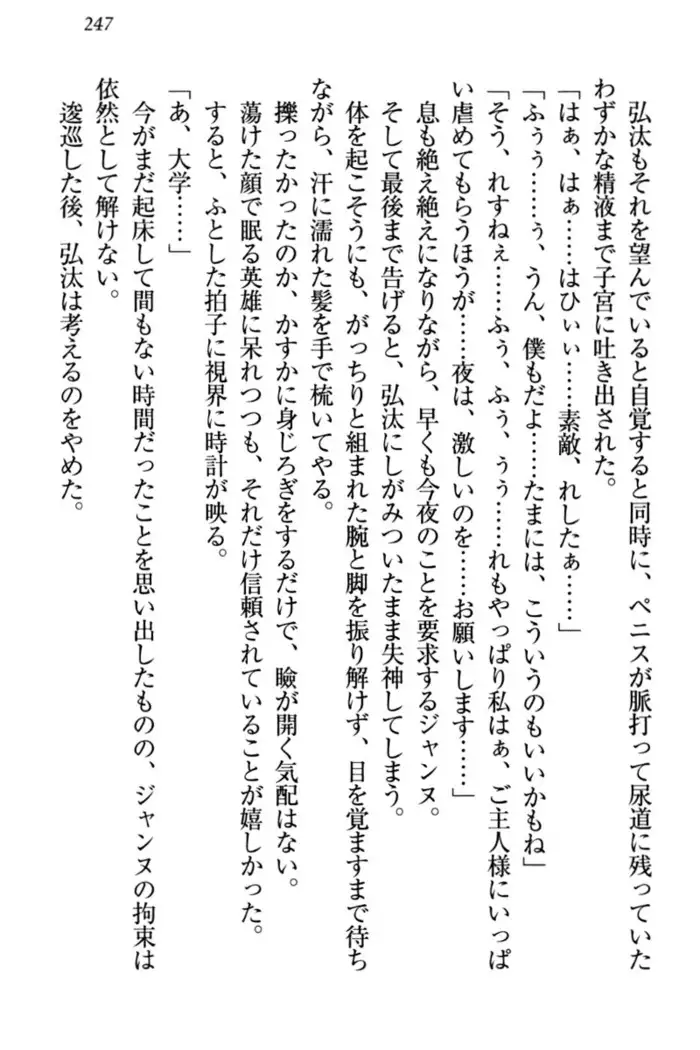 247
弘汰もそれを望んでいると自覚すると同時に、ペニスが脈打って尿道に残っていた
わずかな精液まで子宮に吐き出された。
「はぁ、はぁ……はひぃぃ……素敵、れしたぁ……」
「ふぅぅ……ぅ、うん、僕もだよ……たまには、こういうのもいいかもね」
「そう、れすねぇ……ふぅ、ふぅ、うぅ……れもやっぱり私はぁ、ご主人様にいっぱ
い虐めてもらうほうが……夜は、激しいのを……お願いします……」
息も絶え絶えになりながら、早くも今夜のことを要求するジャンヌ。
そして最後まで告げると、弘汰にしがみついたまま失神してしまう。
体を起こそうにも、がっちりと組まれた腕と脚を振り解けず、目を覚ますまで待ち
ながら、汗に濡れた髪を手で梳いてやる。
擽ったかったのか、かすかに身じろぎをするだけで、瞼が開く気配はない。
蕩けた顔で眠る英雄に呆れつつも、それだけ信頼されていることが嬉しかった。
すると、ふとした拍子に視界に時計が映る。
「あ、大学……」
今がまだ起床して間もない時間だったことを思い出したものの、ジャンヌの拘束は
依然として解けない。
逡巡した後、弘汰は考えるのをやめた。